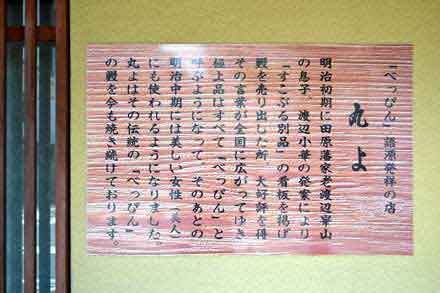 「べっぴん」語源発祥の店
丸よ
明治初期に田原藩家老渡辺崋山
の息子 渡辺小華の発案により
「すこぶる別品」の看板を掲げ
鰻を売り出した所 大好評を得
その言葉が全国に広がってゆき
極上品はすべて「べっぴん」と
呼ぶようになって そのあとの
明治中期には美しい女性（美人）
にも使われるようになりました。
丸よはその伝統の「べっぴん」
の鰻を今も焼き続けております。